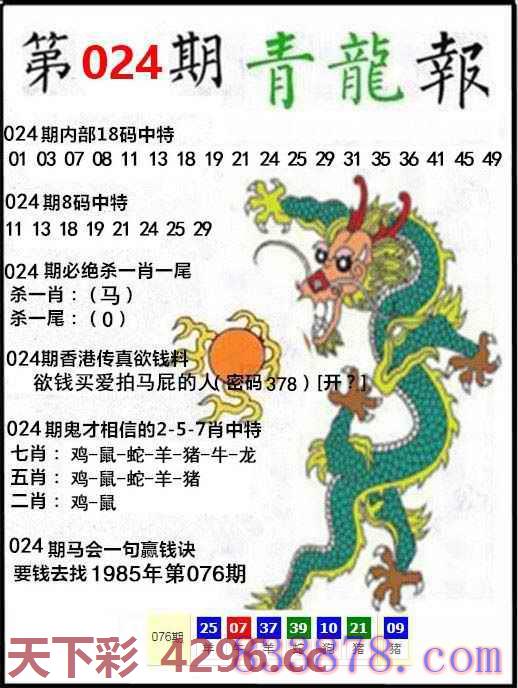 第024期青龍報
024期内部18码中特
01 03 07 08 11 13 18 19 21 24 25 29 31 35 36 41 45 49
024期8码中特
11 13 18 19 21 24 25 29
024期必绝杀一肖一尾
杀一肖：（马）
杀一尾：（0）
024期香港传真欲钱料
欲钱买爱拍马屁的人（密码378）[开？]
024期鬼才相信的2-5-7肖中特
七肖：鸡-鼠-蛇-羊-猪-牛-龙
五肖：鸡-鼠-蛇-羊-猪
二肖：鸡-鼠
024期马会一句赢钱诀
要钱去找1985年第076期
076期 25 07 37 39 10 21 09
羊 羊 狗 猪 猪
天下彩 4296.cc